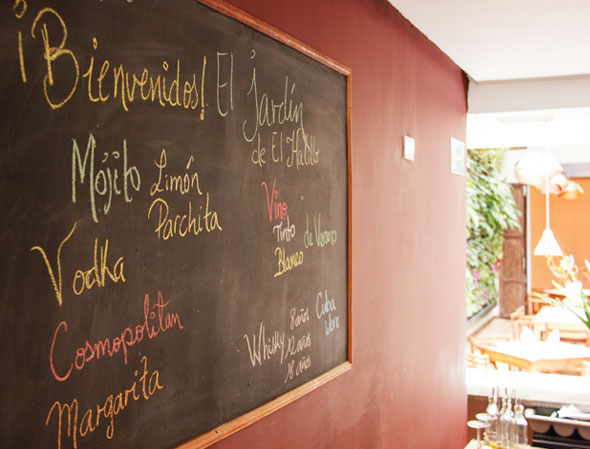 ¡Bienvenidos! El Jardín
de El Hatillo
Mojito Limón
Parchita
Vodka
Cosmopolitan
Margarita
Vino
Tinto
Blanco
de Verano
Whisky 8 años
12 años
18 años
Cuba
Libre